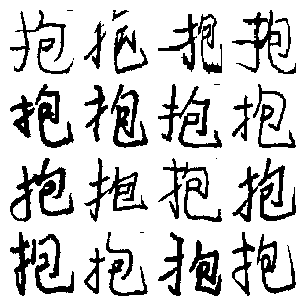 抱抱抱抱
抱抱抱抱
抱抱抱抱
抱抱抱抱